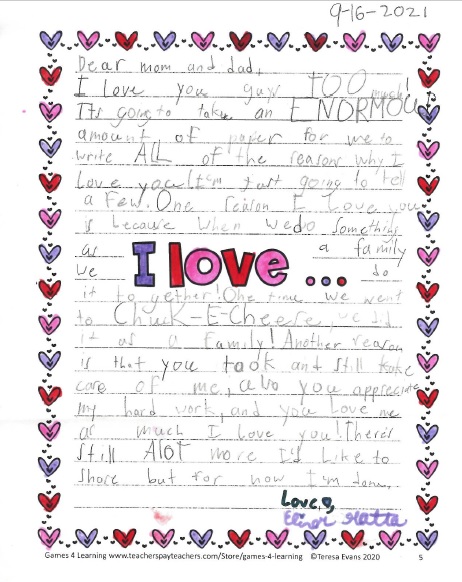 9-16-2021
Dear mom and dad,
I love you guys TOO much!
It's going to take an ENORMOUS
amount of paper for me to
write ALL of the reasons why I
Love you! I'm just going to tell
a Few. One reason I Love you
is because when we do something
as a family
we do
I love ...
it together! One time we went
to Chuck-E-Cheese, we did
it as a Family! Another reason
is that you took and still take
care of me, also you appreciate
my hard work, and you Love me
as much I love you! There's
still Alot more I'd Like to
share but for now I'm done.
Love,
Elinor
Games 4 Learning www.teacherspayteachers.com/Store/games-4-learning ©Teresa Evans 2020 5